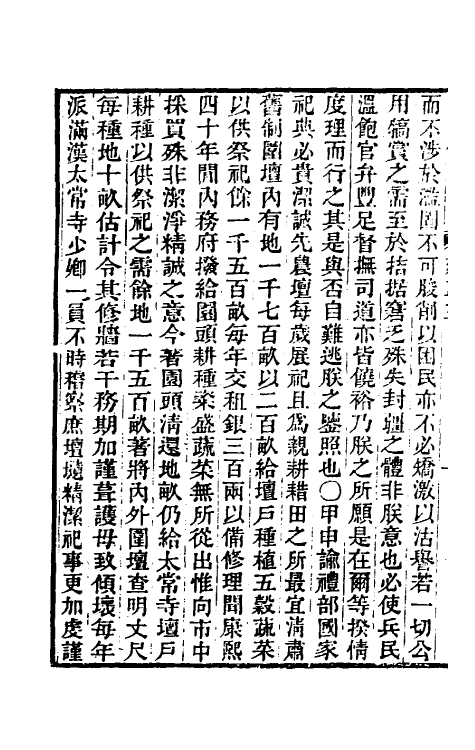 而不涉於濫固不可朘削以困民亦不必矯激以沽譽若一切公
用犒賞之需至於拮据窘乏殊失封疆之體非朕意也必使兵民
溫飽官弁豐足督撫司道亦皆饒裕乃朕之所願是在爾等揆情
度理而行之其是與否自難逃朕之鑒照也○甲申諭禮部國家
祀典必貴潔誠先農壇每歲展祀且爲親耕耤田之所最宜淸肅
舊制圍壇內有地一千七百畝以二百畝給壇戶種植五穀蔬菜
以供祭祀餘一千五百畝每年交租銀三百兩以備修理間康熙
四十年間內務府撥給園頭耕種粢盛蔬菜無所從出惟向市中
採買殊非潔淨精誠之意今著園頭淸還地畝仍給太常寺壇戶
耕種以供祭祀之需餘地一千五百畝著將內外圍壇查明丈尺
每種地十畝估計令其修牆若干務期加謹葺護毋致傾壞每年
派滿漢太常寺少卿一員不時稽察庶壇壝精潔祀事更加虔謹